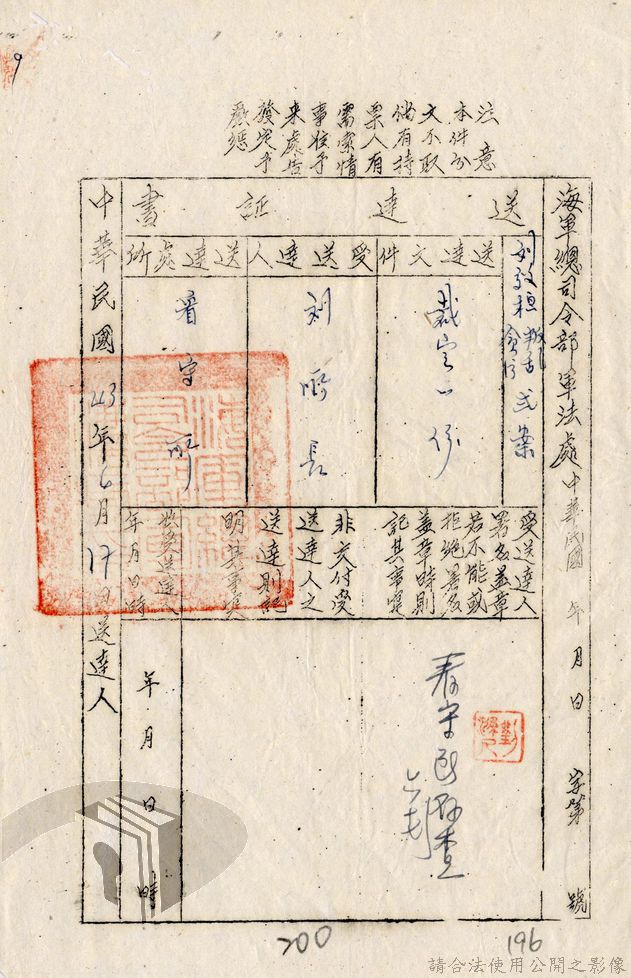 注意
本件如
文不取
倘有持
票人有
需索情
事准予
來處告
發定予
嚴懲
海軍總司令部軍法處 中華民國 年 月 日 字第 號
送達証書
案
送達文件
裁定一份
受送達人
刘所長
送達處所
看守所
受送達人
署名蓋章
若不能或
拒絕署名
蓋章時則
記其事實
非交付受
送達人之
送達則記
明其事實
送達人
年月日時
年 月 日 時
中華民國43年6月17日送達人
200
196
請合法使用公開之影像